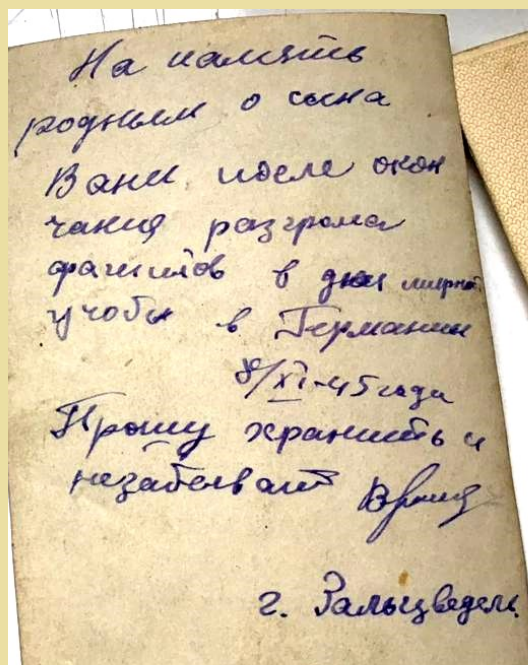 На память
родным о сына
Вани после окон
чания разгрома
фашистов в дни мирной
учобы в Германии
8/XI-45 года
Прошу хранить и
незабывать
г. Зальцведель